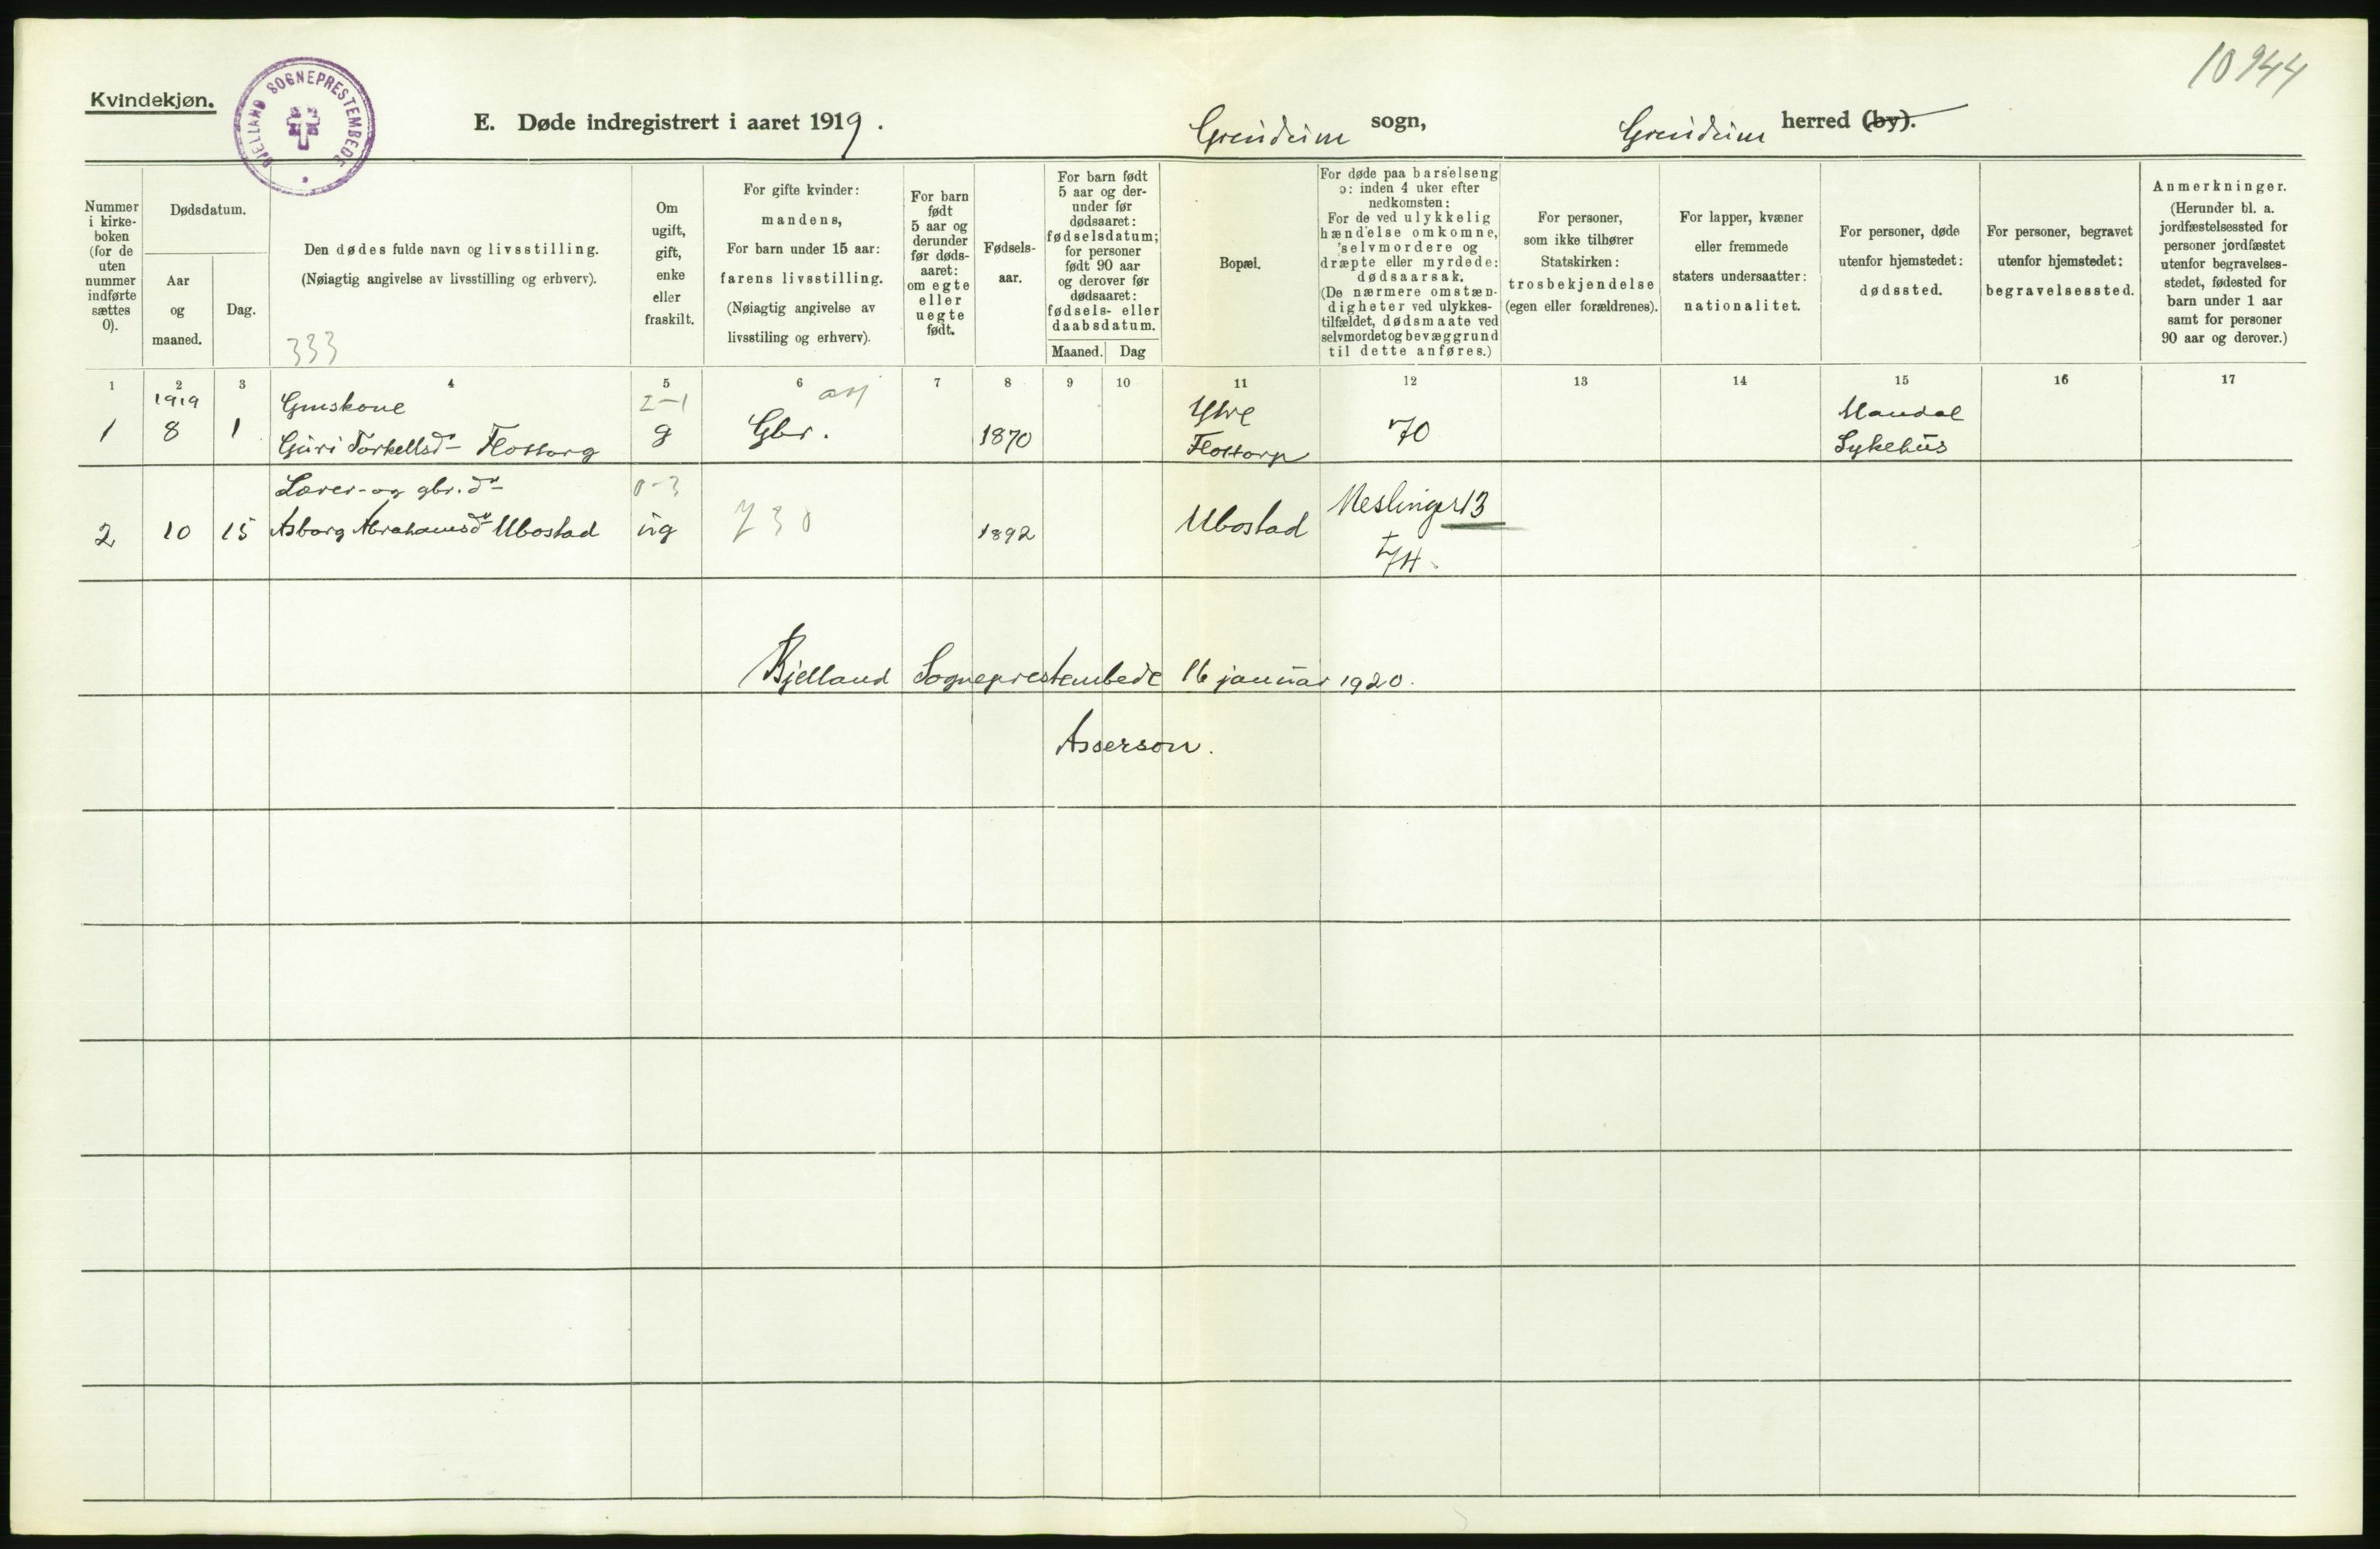 10944
Kvindekjøn.
BJELLAND SOGNEPRESTEMBEDE
E. Døde indregistrert i aaret 1919.
Greiudeim sogn,
Greiudeim herred (by).
Nummer
i kirke-
boken
(for de
uten
nummer
indførte
sættes
0).
Dødsdatum.
Aar
og
maaned.
Dag.
Den dødes fulde navn og livsstilling.
(Nøiagtig angivelse av livsstilling og erhverv).
333
Om
ugift,
gift,
enke
eller
fraskilt.
For gifte kvinder:
mandens,
For barn under 15 aar:
farens livsstilling.
(Nøiagtig angivelse av
livsstiling og erhverv).
For barn
født
5 aar og
derunder
før døds-
aaret:
om egte
eller
uegte
født.
Fødsels-
aar.
For barn født
5 aar og der-
under før
dødsaaret:
fødselsdatum;
for personer
født 90 aar
og derover før
dødsaaret:
fødsels- eller
daabsdatum.
Maaned. Dag
Bopæl.
For døde paa barselseng
ɔ: inden 4 uker efter
nedkomsten:
For de ved ulykkelig
hændelse omkomne,
selvmordere og
dræpte eller myrdede:
dødsaarsak.
(De nærmere omstæn-
digheter ved ulykkes-
tilfældet, dødsmaate ved
selvmordet og bevæggrund
til dette anføres.)
For personer,
som ikke tilhører
Statskirken:
trosbekjendelse
(egen eller forældrenes).
For lapper, kvæner
eller fremmede
staters undersaatter:
nationalitet.
For personer, døde
utenfor hjemstedet:
dødssted.
For personer, begravet
utenfor hjemstedet:
begravelsessted.
Anmerkninger.
(Herunder bl. a.
jordfæstelsessted for
personer jordfæstet
utenfor begravelses-
stedet, fødested for
barn under 1 aar
samt for personer
90 aar og derover.)
1 2 3 4 5 6 7 8 9 10 11 12 13 14 15 16 17
1919 Gmskone 2-1 Ytre Mandal
1 8 1 Guri Torkellsd- Flottorp g Gbr. 1870 Flottorp 70 Sykehus
Lærer- og gbr. d- 0-3
2 10 15 Asborg Abrahamsd- Ubostad ug 230 1892 Ubostad Meslinger 13
+74.
Bjelland Sogneprestembede 16 januar 1920.
Asserson.